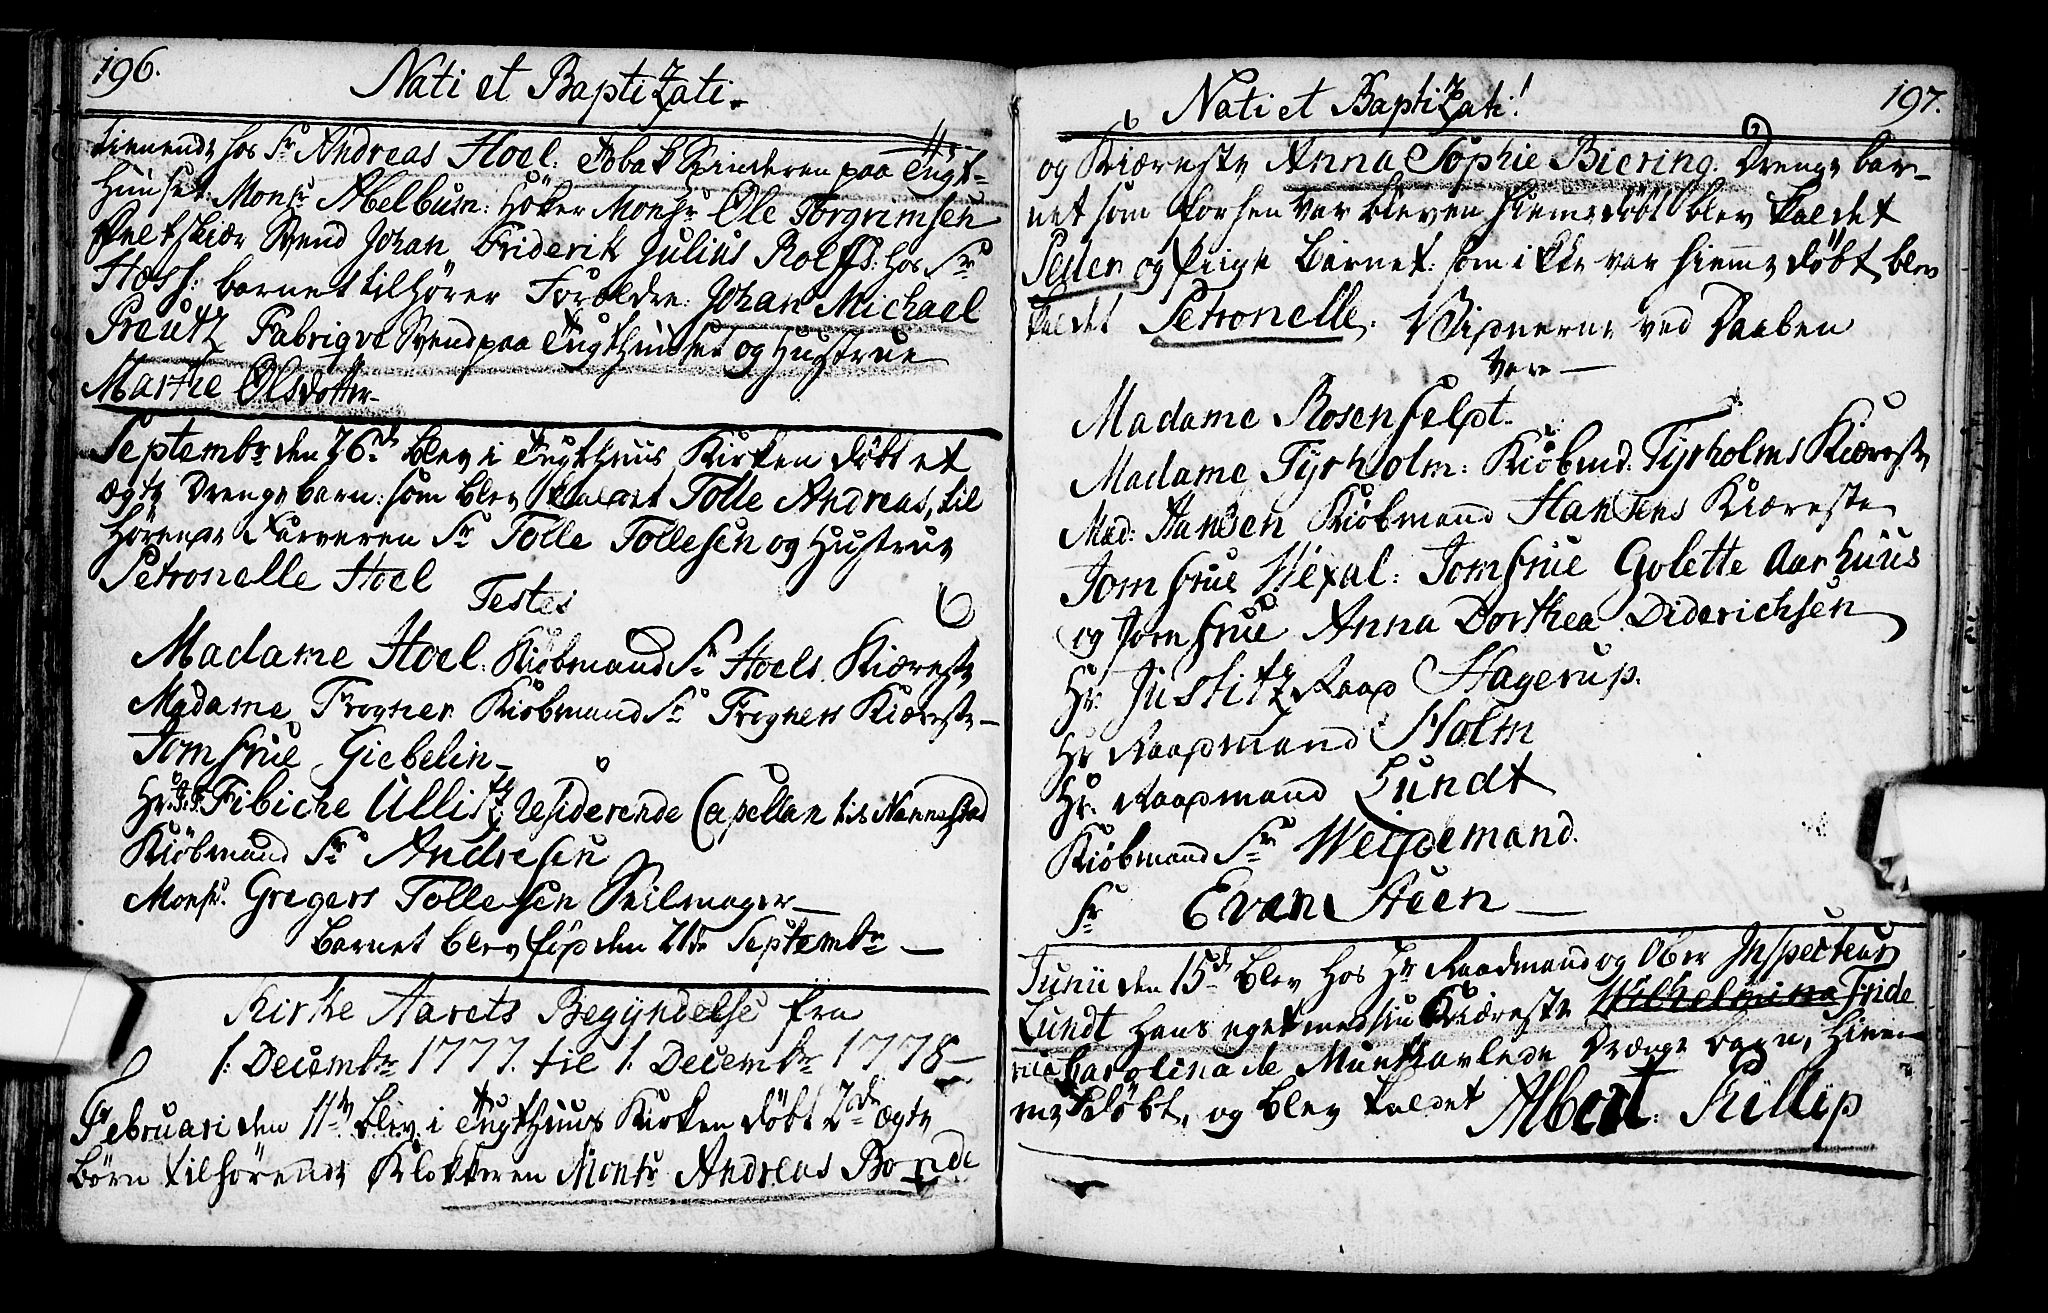 196.
Nati et Baptizati.
tienende hos Sr Andreas Hoel: Tobak Spinderen paa Tugt-
Huuset: Monsr Abelbum: Höker Monsr Ole Torgrimsen
Svend Johan Friderik Julius Rolffs: hos Sr
Hoss: barnet tilhörer Foroldre: Johan Michael
Preutz Fabriqve Svend paa Tugthuuset og Hustrue
Marthe Olsdotter
Septembr den 26de blev i Tugthuus Kirken döbt et
ægte Drenge barn: som blev kaldet Tolle Andreas, til
hörende Farveren Sr Tolle Tollesen og Hustrue
Petronelle Hoel
Testes
Madame Hoel: Kiöbmand Sr Hoels Kiæreste
Madame Frogner Kiöbmand Sr Frogners Kiæreste
Jomfrue Giebelin
Hr: Fibiche Ullitz, residerende Capellan til Nannestad
Kiöbmand Sr Andresen
Monsr. Gregers Tollesen Seilmager
barnet blev föd den 21de Septembr
Kirke Aarets Begÿndelse fra
1: Decembr 1777. til 1: Decembr 1778
Februari den 11te blev i Tugthuus Kirken döbt 2de ægte
börn tilhörende Klokkeren Monsr Andreas Bonde
197.
Nati et Baptizati!
og Kiæreste Anna Sophie Biering. Drenge bar-
net som forhen var bleven hiemedöbt blev kaldet
Peder og Pige barnet: som ikke var hiemme döbt, blev
kaldet Petronelle. Vidnerne ved Daaben
vare
Madame Rosenfeldt.
Madame Tÿrholm: Kiöbmd: Tÿrholms Kiæreste
Mad: Hansen Kiöbmand Hansens Kiæreste
Jomfrue Wexal: Jomfrue Golette Aarhuus
og Jomfrue Anna Dorthea Diderichsen
Hr. Justitz Raad Hagerup.
Hr Raadmand Holm
Hr. Raadmand Lundt
Kiöbmand Sr Weÿdemand.
Sr Even Steen
Junii den 15de blev hos Hr Raadmand og Ober Inspecteur
Lundt hans eget med sin Kiæreste Wilhelmina Fride
rica Carolina de Munk avlede Drænge barn, hiem-
me döbt, og blev kaldet Albert: Fillip